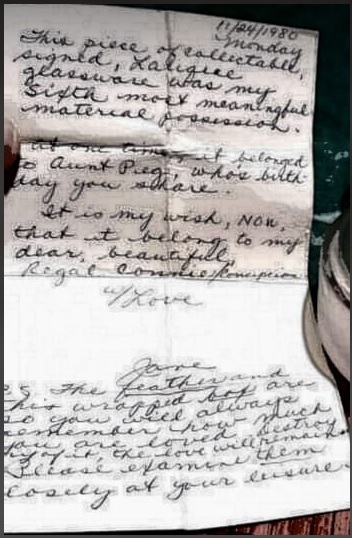 11/24/1980
Monday
This piece of collectable,
signed, Lalique
glassware was my
sixth most meaningful
material possession.
at one time, it belonged
to Aunt Peg, who's birth-
day you share.
It is my wish, NOW,
that it belong to my
dear, beautiful,
Regal Connie/Concepcion
w/Love
Jane
P.S. The feather and
this wrapped box are
so you will always
remember how much
you are loved. destroy
of it, the love will remain.
Please examine them
closely at your leisure.